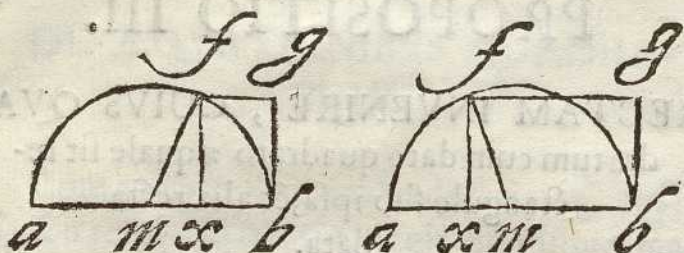 f g f g
a m x b a x m b